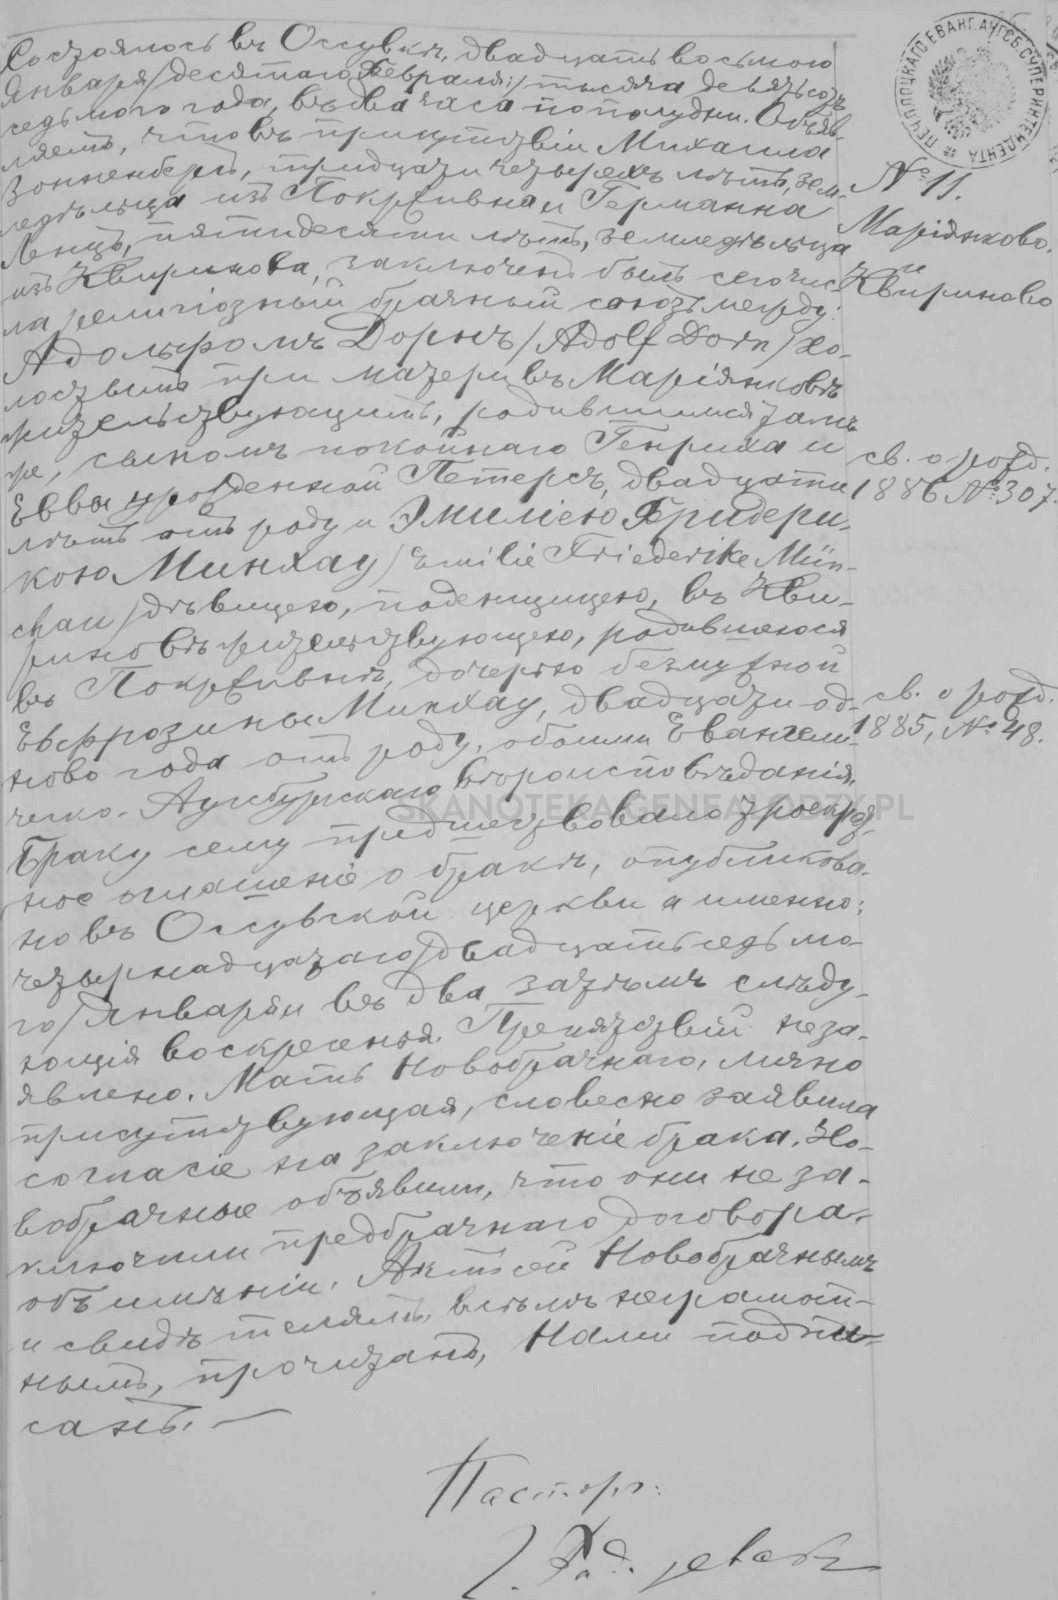 Состоялось въ Оссувкѣ, двадцать восьмого
Января/десятаго Февраля:/ тысяча девятьсотъ
седьмого года, въ два часа пополудни. Объяв-
ляемъ, что въ присутствіи Михаила
Зонненберг, тридцати четырехъ лѣтъ, зем-
ледѣльца изъ Покрживна и Германна
Ленцъ, пятидесяти лѣтъ, земледѣльца
изъ Квиринова, заключенъ былъ сего чис-
ла религіозный брачный союзъ между:
Адольфомъ Дорнъ /Adolf Dorn/ хо-
лостымъ при матери въ Маріянковѣ
жительствующимъ, родившимся тамъ
же, сыномъ покойнаго Генриха и
Еввы урожденной Петерсъ, двадцати
лѣтъ отъ роду и Эмиліею Фридери-
кою Минхау /Emilie Friederike Mün-
chau/ дѣвицею, поденщицею, въ Кви-
риновѣ жительствующею, родившеюся
въ Покрживнѣ, дочерью безмужной
Евфрозины Минхау, двадцати од-
ного года отъ роду, обоими Евангели-
ческо-Аугсбургскаго вѣроисповѣданія.
Браку сему предшествовало троекрат-
ное оглашеніе о бракѣ, опубликова-
но въ Оссувской церкви а именно:
четырнадцатаго/двадцать седьмо-
го/Января и въ два затѣмъ слѣду-
ющія воскресенья. Препятствій не за-
явлено. Мать Новобрачнаго, лично
присутствующая, словесно заявила
согласіе на заключеніе брака. Но-
вобрачные объявили, что они не за-
ключили предбрачнаго договора
объ имѣніи. Актъ сей Новобрачнымъ
и свидѣтелямъ, всѣмъ неграмот-
нымъ, прочитанъ, Нами подпи-
санъ.
Пасторъ:
ПЛОЦКАГО ЕВАНГ. АУГСБ. СУПЕРИНТЕНДЕНТА
№ 11.
Маріянково.
и
Квириново
св. о рожд.
1886 № 307.
св. о рожд.
1885, № 48.
SKANOTEKA.GENEALODZY.PL